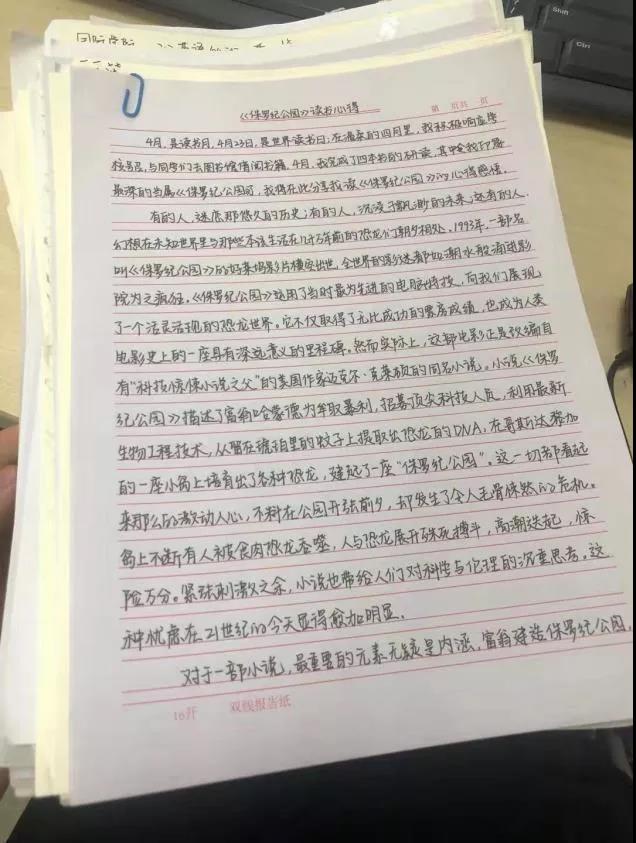 Shift
Ctrl
《侏罗纪公园》读书心得
第 页共 页
4月,是读书月,4月23日,是世界读书日;在清柔的四月里,我积极响应学
校号召,与同学们去图书馆借阅书籍,4月,我完成了四本书的研读,其中令我印象
最深的当属《侏罗纪公园》,我将在此分享我读《侏罗纪公园》的心得感悟。
有的人,迷恋那悠久的历史;有的人,沉浸于飘渺的未来;还有的人,
幻想在未知世界里与那些本该生活在几千万年前的恐龙们朝夕相处。1993年,一部名
叫《侏罗纪公园》的好莱坞影片横空出世,全世界的影迷都如潮水般涌进影
院为之疯狂。《侏罗纪公园》运用了当时最为先进的电脑特技,向我们展现
了一个活灵活现的恐龙世界。它不仅取得了无比成功的票房成绩,也成为人类
电影史上的一座具有深远意义的里程碑。然而实际上,这部电影正是改编自
有“科技惊悚小说之父”的美国作家迈克尔·克莱顿的同名小说。小说《侏罗
纪公园》描述了富翁哈蒙德为牟取暴利,招募顶尖科技人员,利用最新
生物工程技术,从留在琥珀里的蚊子上提取出恐龙的DNA,在哥斯达黎加
的一座小岛上培育出了各种恐龙,建起了一座“侏罗纪公园”。这一切都看起
来那么的激动人心,不料在公园开张前夕,却发生了令人毛骨悚然的危机。
岛上不断有人被食肉恐龙吞噬,人与恐龙展开殊死搏斗,高潮迭起,惊
险万分。紧张刺激之余,小说也带给人们对科学与伦理的沉重思考。这
种忧虑在21世纪的今天显得愈加明显。
对于一部小说,最重要的元素无疑是内涵,富翁建造侏罗纪公园,
16开 双线报告纸